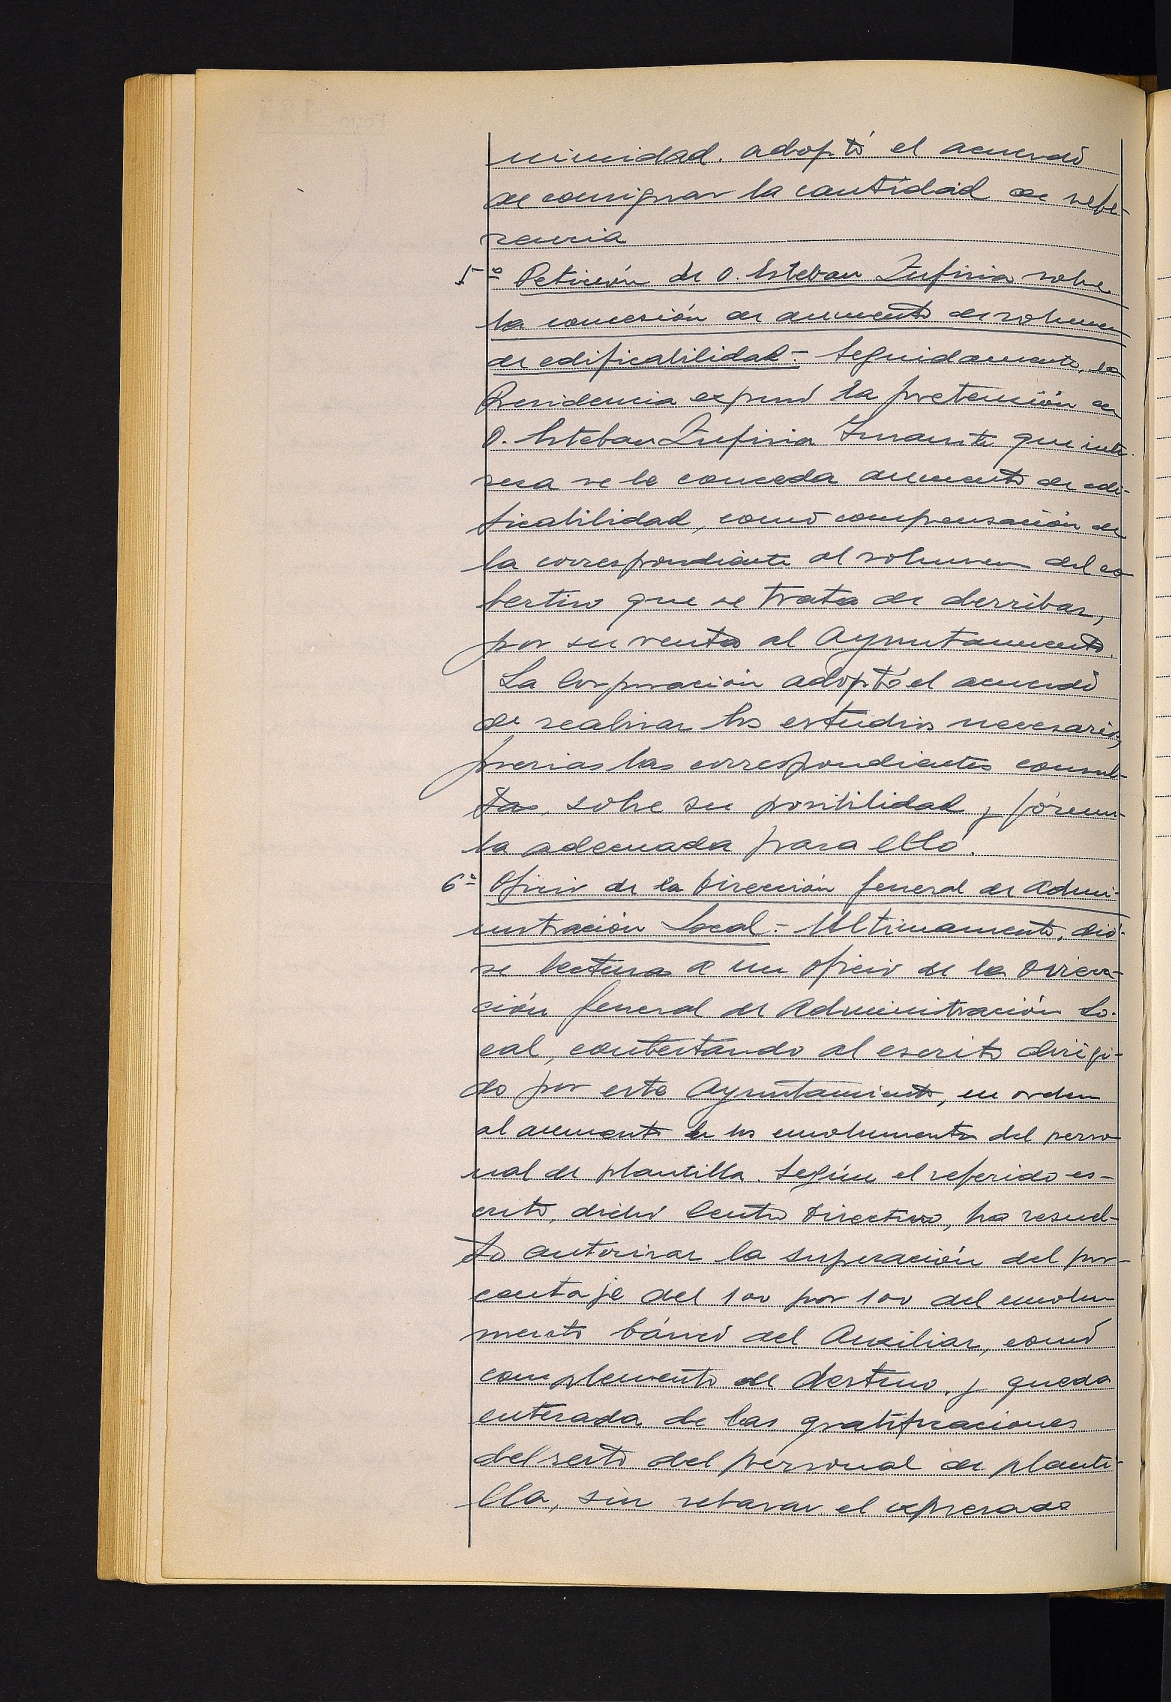 nimidad. adoptó el acuerdo
de consignar la cantidad de refe-
rencia
5º Petición de D. Esteban Zufiria sobre
la concesión de aumento de volumen
de edificabilidad.- Seguidamente, la
Presidencia expuso la pretensión de
D. Esteban Zufiria que inte-
resa se le conceda aumento de edi-
ficabilidad, como compensación de
la correspondiente al volumen del co-
bertizo que se trata de derribar,
por su venta al Ayuntamiento.
La Corporación adoptó el acuerdo
de realizar los estudios necesarios,
previas las correspondientes consul-
tas, sobre su posibilidad y fórmu-
la adecuada para ello.
6º Oficio de la Dirección General de Admi-
nistración Local.- Ultimamente, dió-
se lectura a un oficio de la Direc-
ción General de Administración Lo-
cal, contestando al escrito dirigi-
do por este Ayuntamiento, en orden
al aumento de los emolumentos del perso
nal de plantilla. Según el referido es-
crito, dicho Centro Directivo, ha resuel-
to autorizar la superación del por-
centaje del 100 por 100 del emolu
mento básico del Auxiliar, como
complemento de destino, y queda
enterada de las gratificaciones
del resto del personal de planti-
lla, sin rebasar el expresado